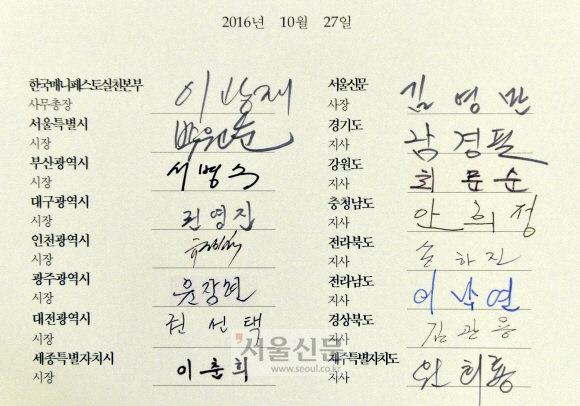 2016년 10월 27일
한국매니페스토실천본부
사무총장 이광재
서울신문
사장 김영만
서울특별시
시장 박원순
경기도
지사 남경필
부산광역시
시장 서병수
강원도
지사 최문순
대구광역시
시장 권영진
충청남도
지사 안희정
인천광역시
시장
전라북도
지사 송하진
광주광역시
시장 윤장현
전라남도
지사 이낙연
대전광역시
시장 권선택
경상북도
지사 김관용
세종특별자치시
시장 이춘희
제주특별자치도
지사 원희룡
서울신문
www.seoul.co.kr